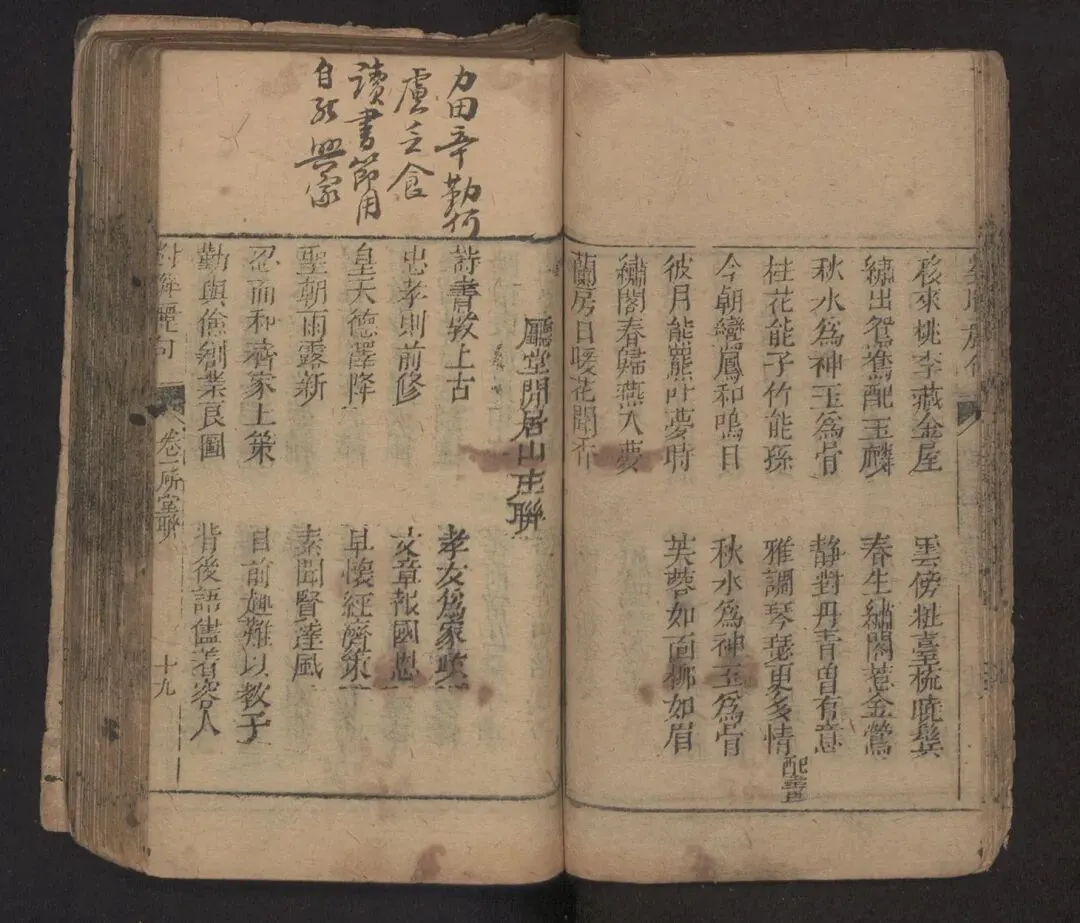 移來桃李藏金屋
雲傍粧臺梳曉鬓
繡出鴛鴦配玉麟
春生繡閣惹金鶯
秋水為神玉為骨
靜對丹青曾有意
桂花能子竹能孫
雅調琴瑟更多情
配書
今朝鸞鳳和鳴日
秋水為神玉為骨
彼月能羆叶夢時
芙蓉如面柳如眉
繡閣春歸燕入夢
蘭房日暖花聞香
力田辛勤何
慮乏食
讀書節用
自能興家
廳堂閒居山庄聯
詩書敦上古
孝友為家政
忠孝則前修
文章報國恩
皇天德澤降
早懷經濟策
聖朝雨露新
素聞賢達風
忍而和齊家上策
目前趣難以教子
勤與儉創業良圖
背後語儘著容人
麗句
卷一廳堂聯
十九